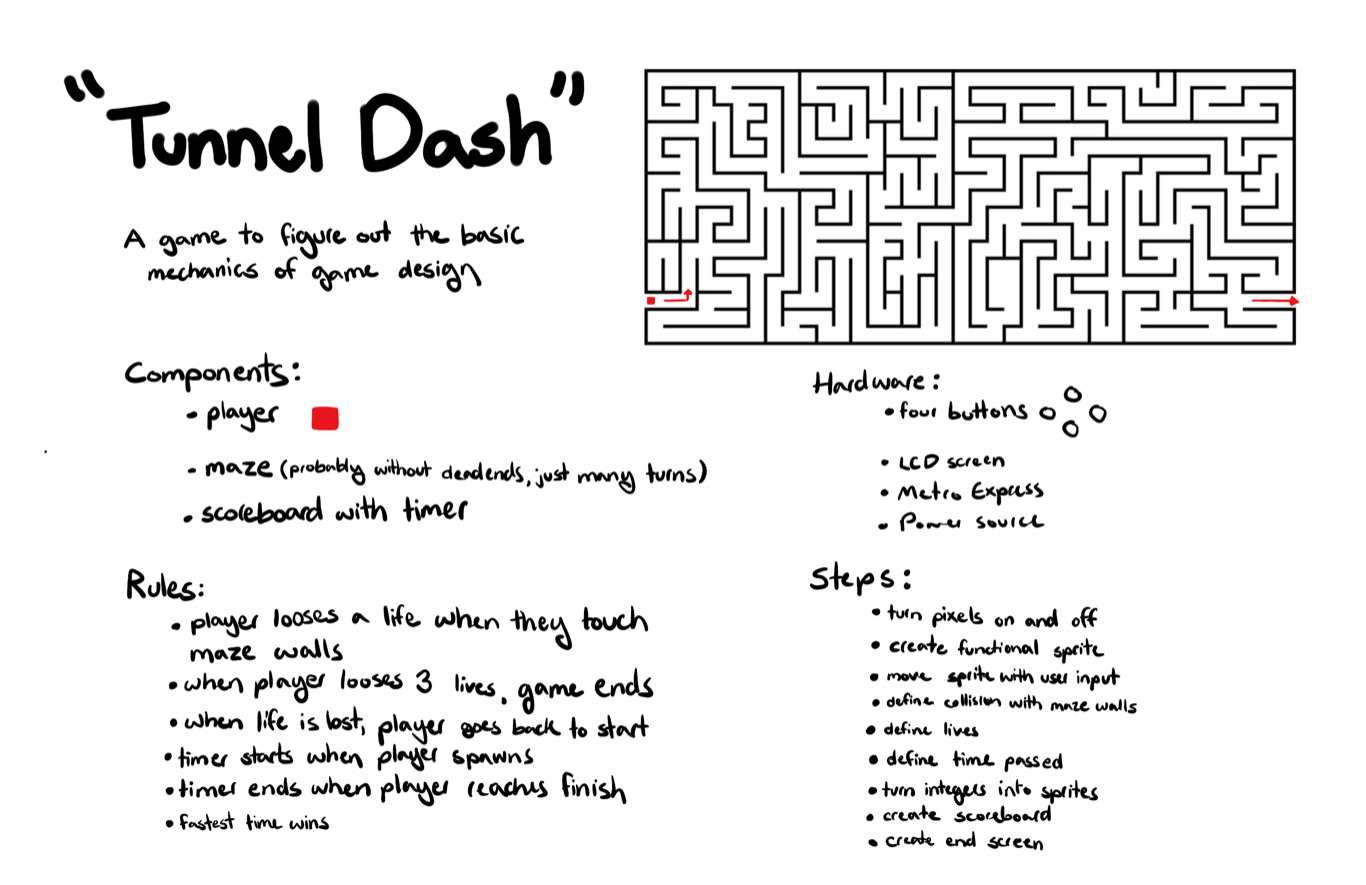 "Tunnel Dash"
A game to figure out the basic
mechanics of game design
Components:
• player
• maze (probably without deadends, just many turns)
• scoreboard with timer
Hardware:
• four buttons
• LCD screen
• Metro Express
• Power source
Rules:
• player looses a life when they touch
maze walls
• when player looses 3 lives, game ends
• when life is lost, player goes back to start
• timer starts when player spawns
• timer ends when player reaches finish
• fastest time wins
Steps:
• turn pixels on and off
• create functional sprite
• move sprite with user input
• define collision with maze walls
• define lives
• define time passed
• turn integers into sprites
• create scoreboard
• create end screen